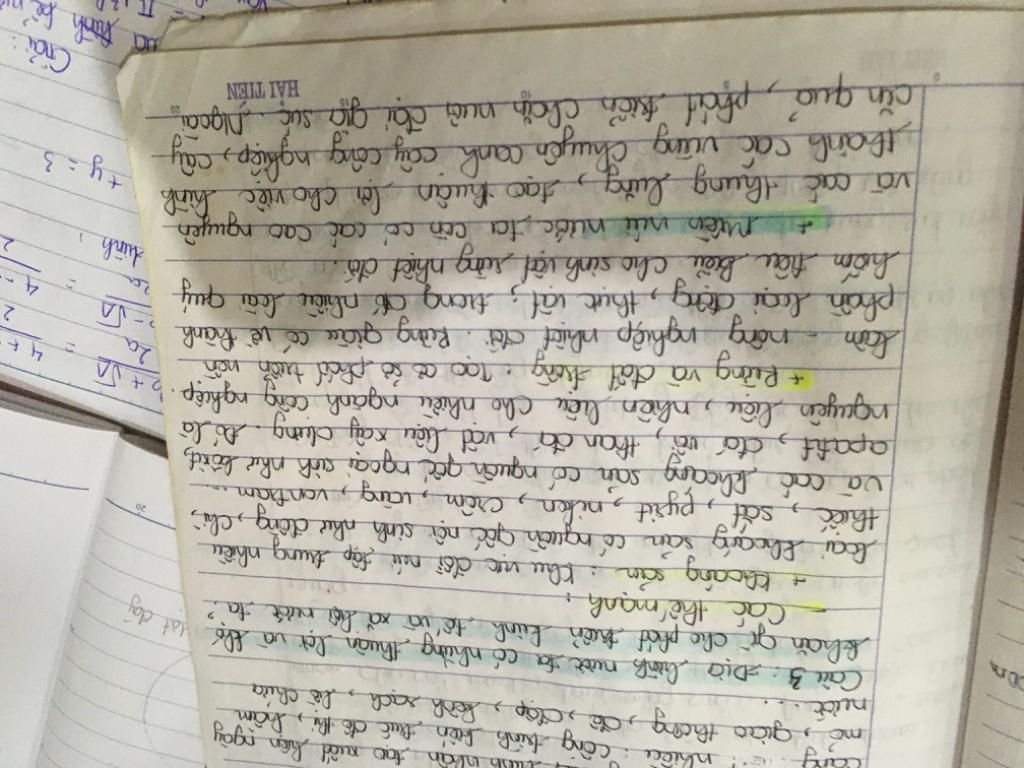 hình nhân tạo xuất hiện ngày
càng nhiều: công trình kiến trúc đô thị, hầm
mỏ, giao thông, đê, đập, kênh rạch, hồ chứa
nước...
Câu 3: Địa hình nước ta có những thuận lợi và khó
khăn gì cho phát triển kinh tế và xã hội nước ta?
- Các thế mạnh:
+ Khoáng sản: Khu vực đồi núi tập trung nhiều
loại khoáng sản có nguồn gốc nội sinh như đồng, chì,
thiếc, sắt, pyrit, niken, crôm, vàng, vonfram...
và các khoáng sản có nguồn gốc ngoại sinh như bôxit,
apatit, đá vôi, than đá, vật liệu xây dựng. Đó là
nguyên liệu, nhiên liệu cho nhiều ngành công nghiệp.
+ Rừng và đất trồng: Tạo cơ sở phát triển nền
lâm nông nghiệp nhiệt đới. Rừng giàu có về thành
phần loài động, thực vật; trong đó nhiều loài quý
hiếm tiêu biểu cho sinh vật rừng nhiệt đới.
+ Miền núi nước ta còn có các cao nguyên
và các thung lũng, tạo thuận lợi cho việc hình
thành các vùng chuyên canh cây công nghiệp, cây
ăn quả, phát triển chăn nuôi đại gia súc. Ngoài
HẢI TIẾN
2 + √Δ
2a
=
4 +
2
2 - √Δ
2a
=
4 -
2
+ y = 3
Giải: